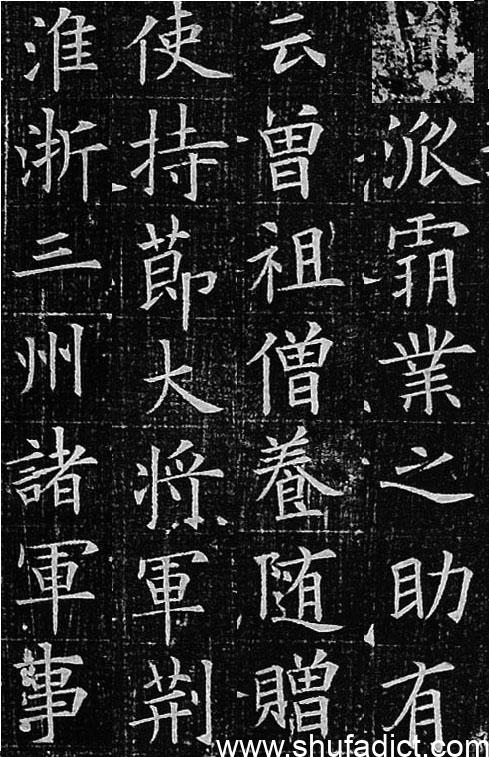 派霸業之助有
云曾祖僧養随贈
使持莭大将軍荆
淮浙三州諸軍事
www.shufadict.com